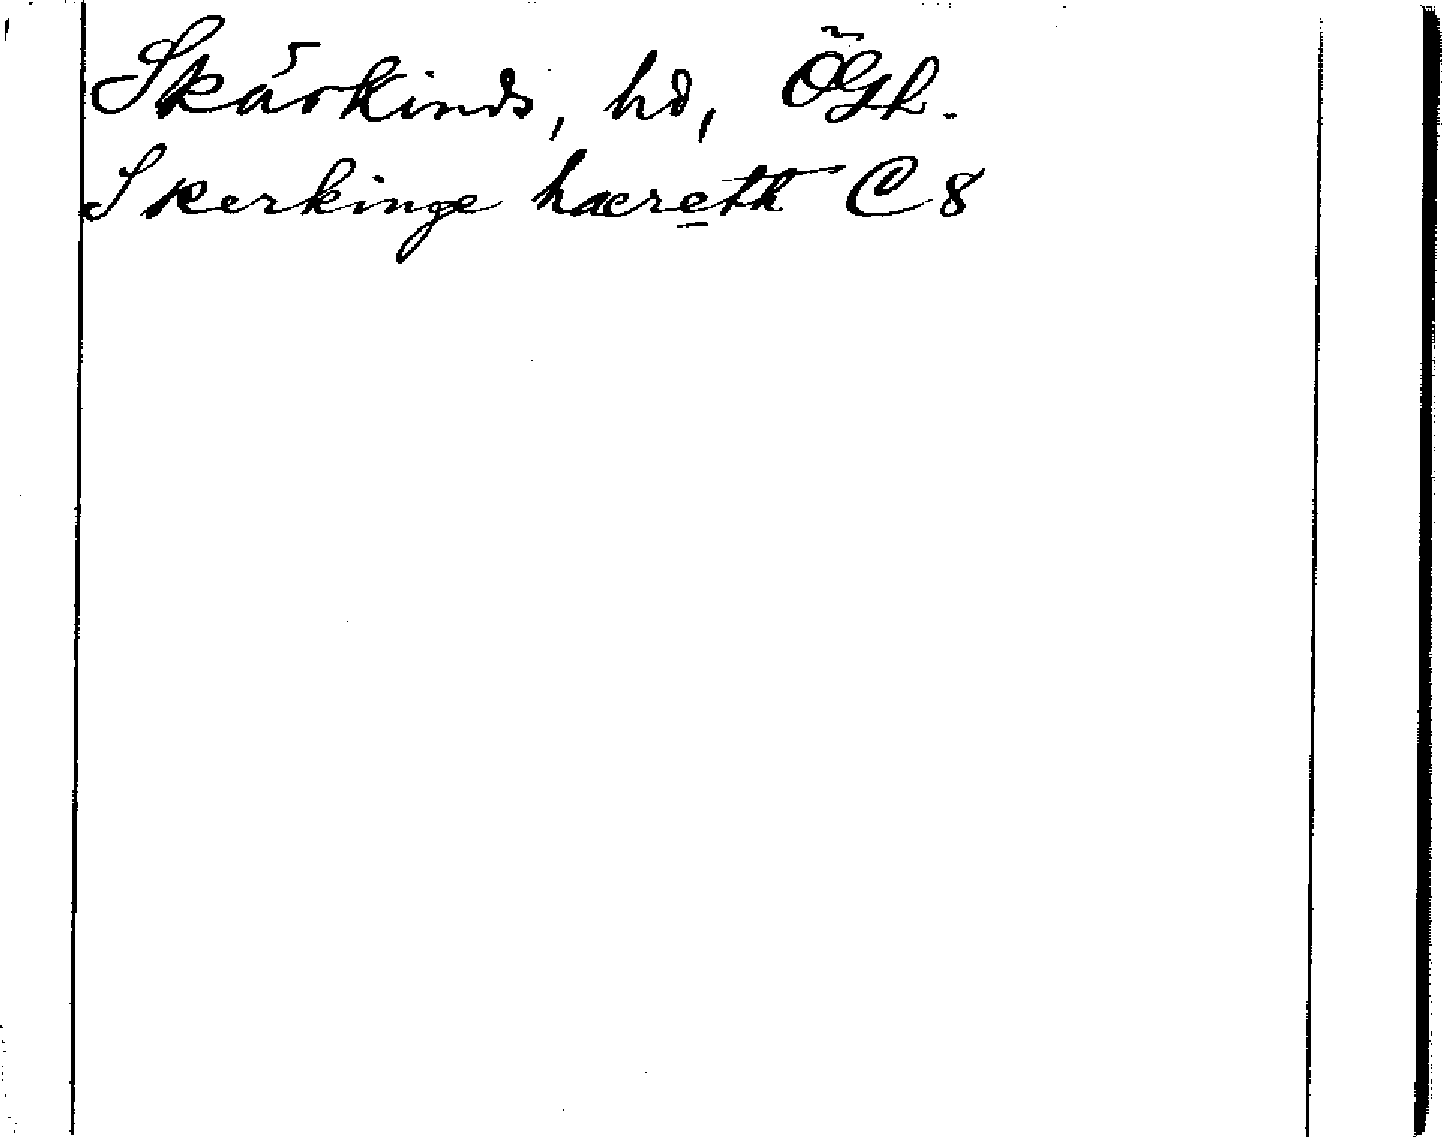 Skärkinds, hd, ÖGL.
Skerkinge hæreth C 8